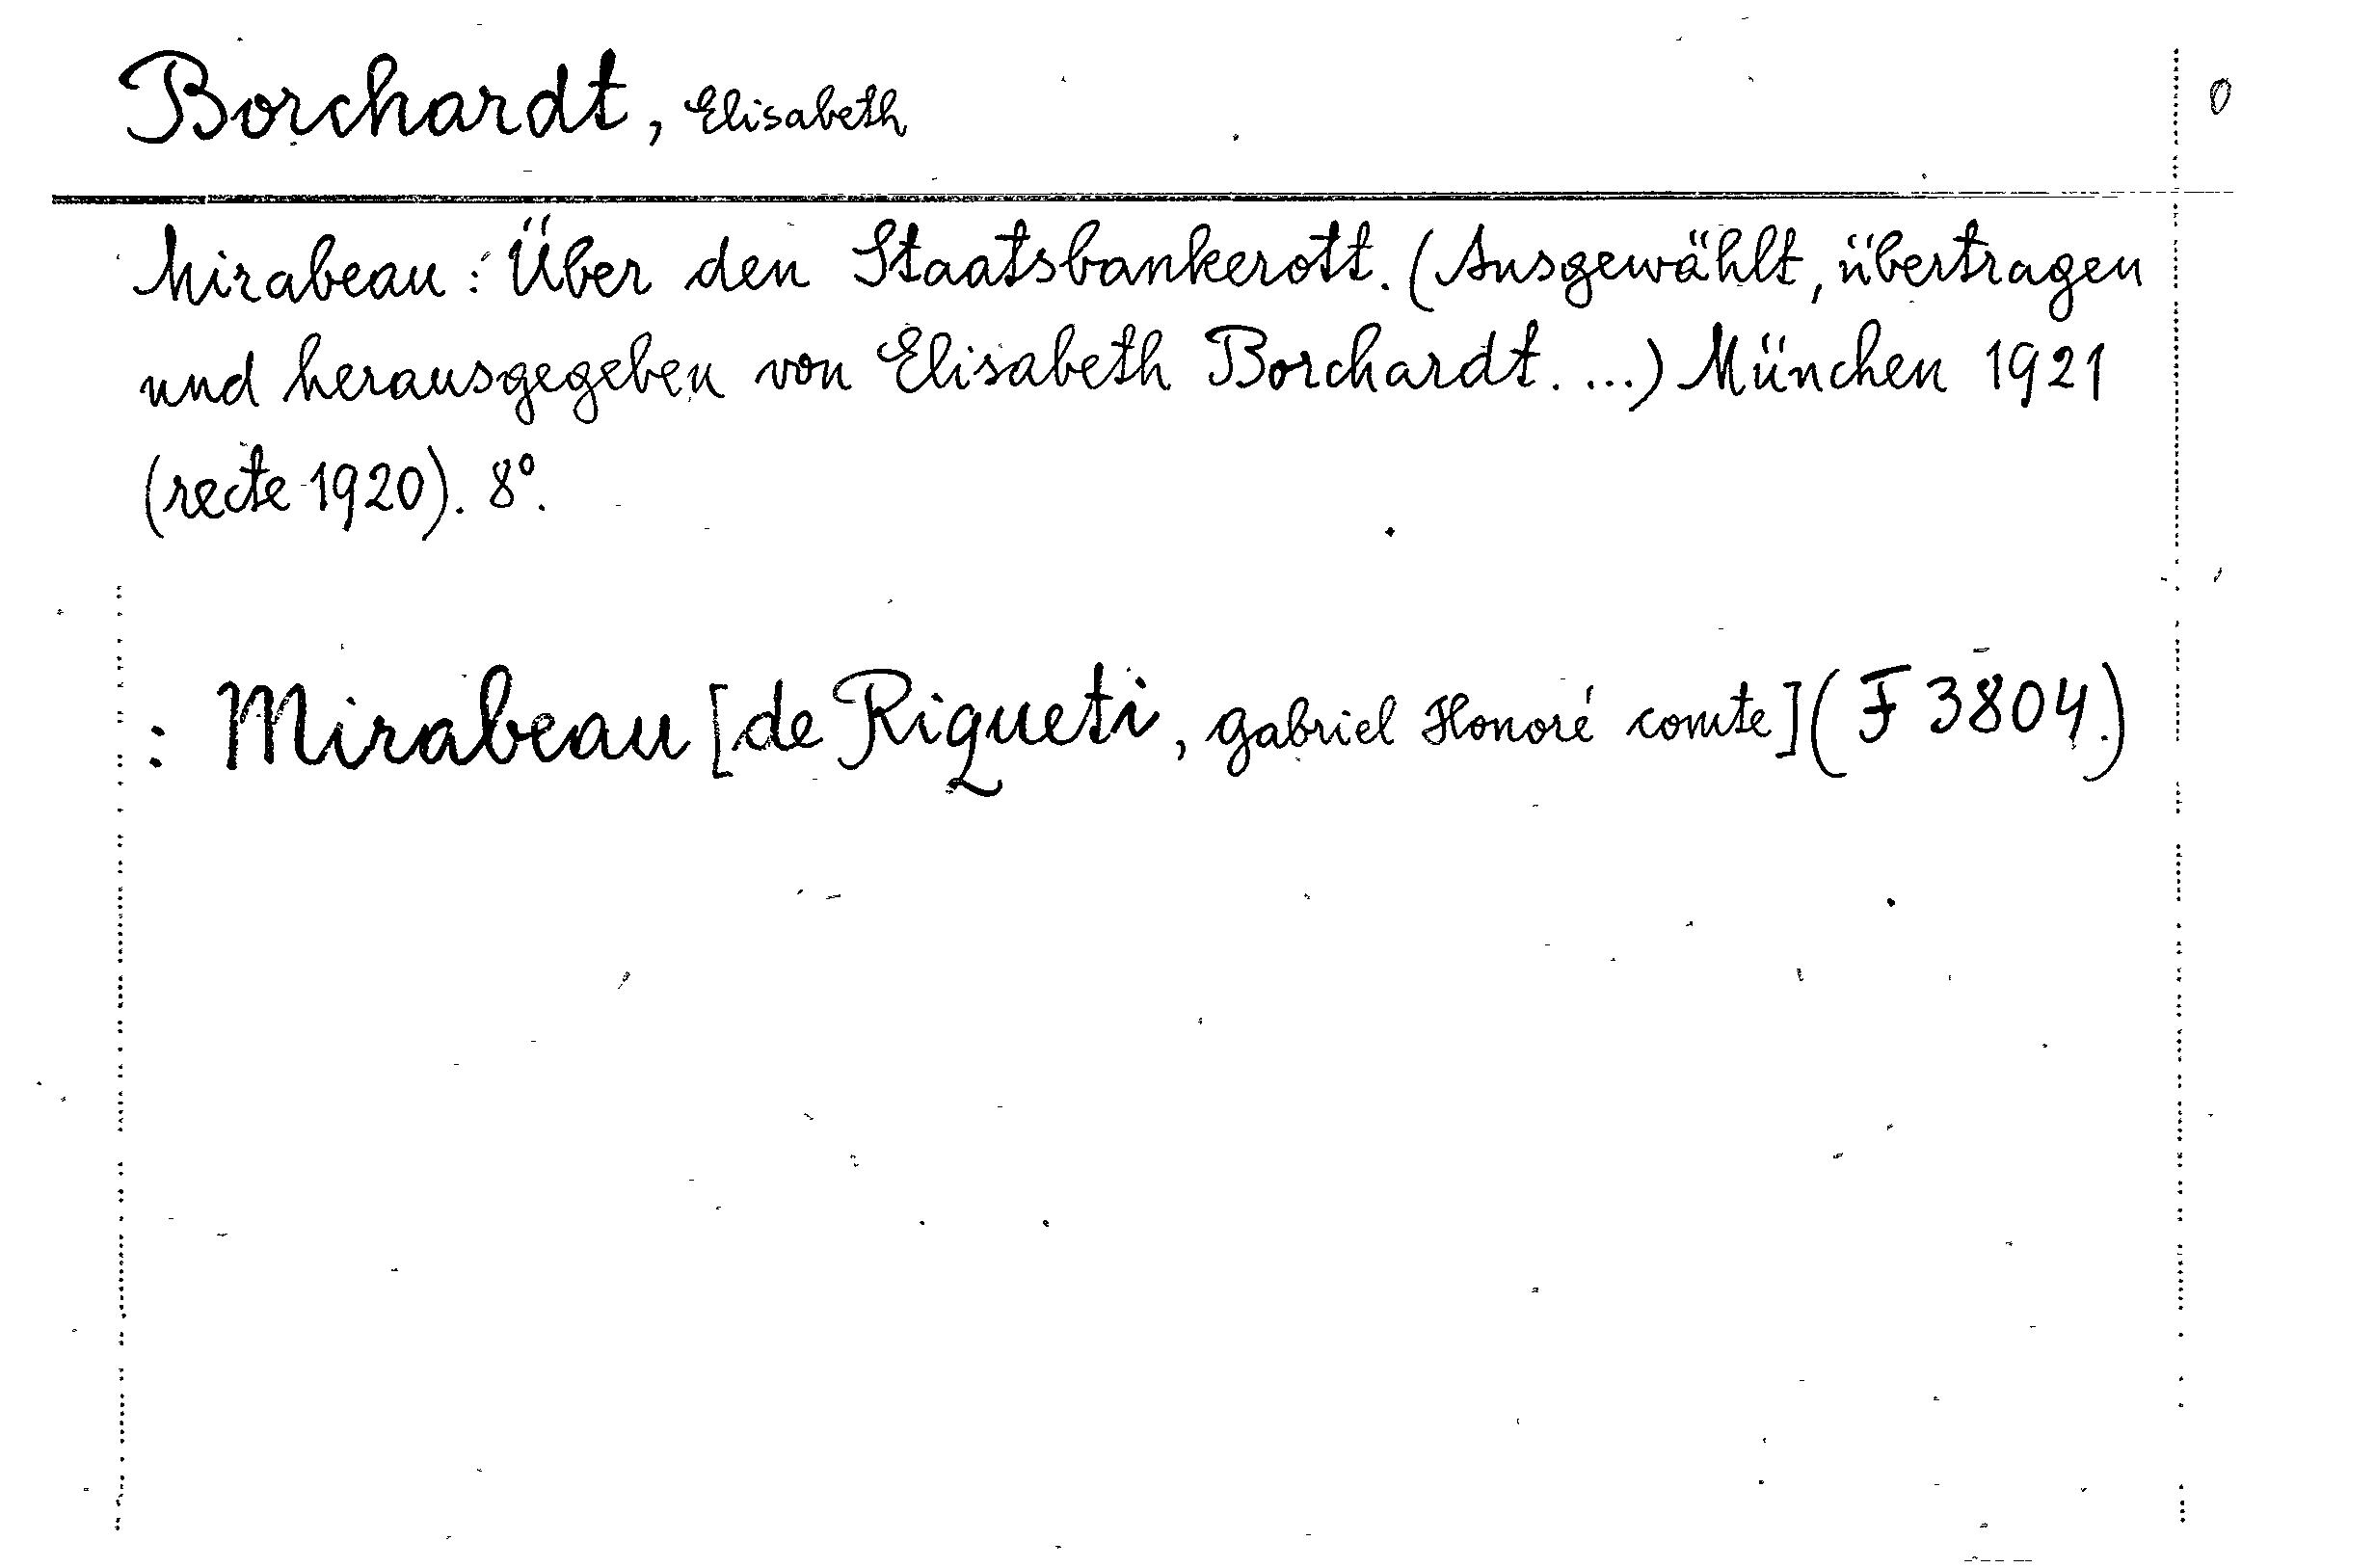 Borchardt, Elisabeth 0
Mirabeau: Über den Staatsbankerott. (Ausgewählt, übertragen
und herausgegeben von Elisabeth Borchardt. ...) München 1921
(recte 1920). 8°.
: Mirabeau [de Riqueti, Gabriel Honoré comte] (F 3804.)